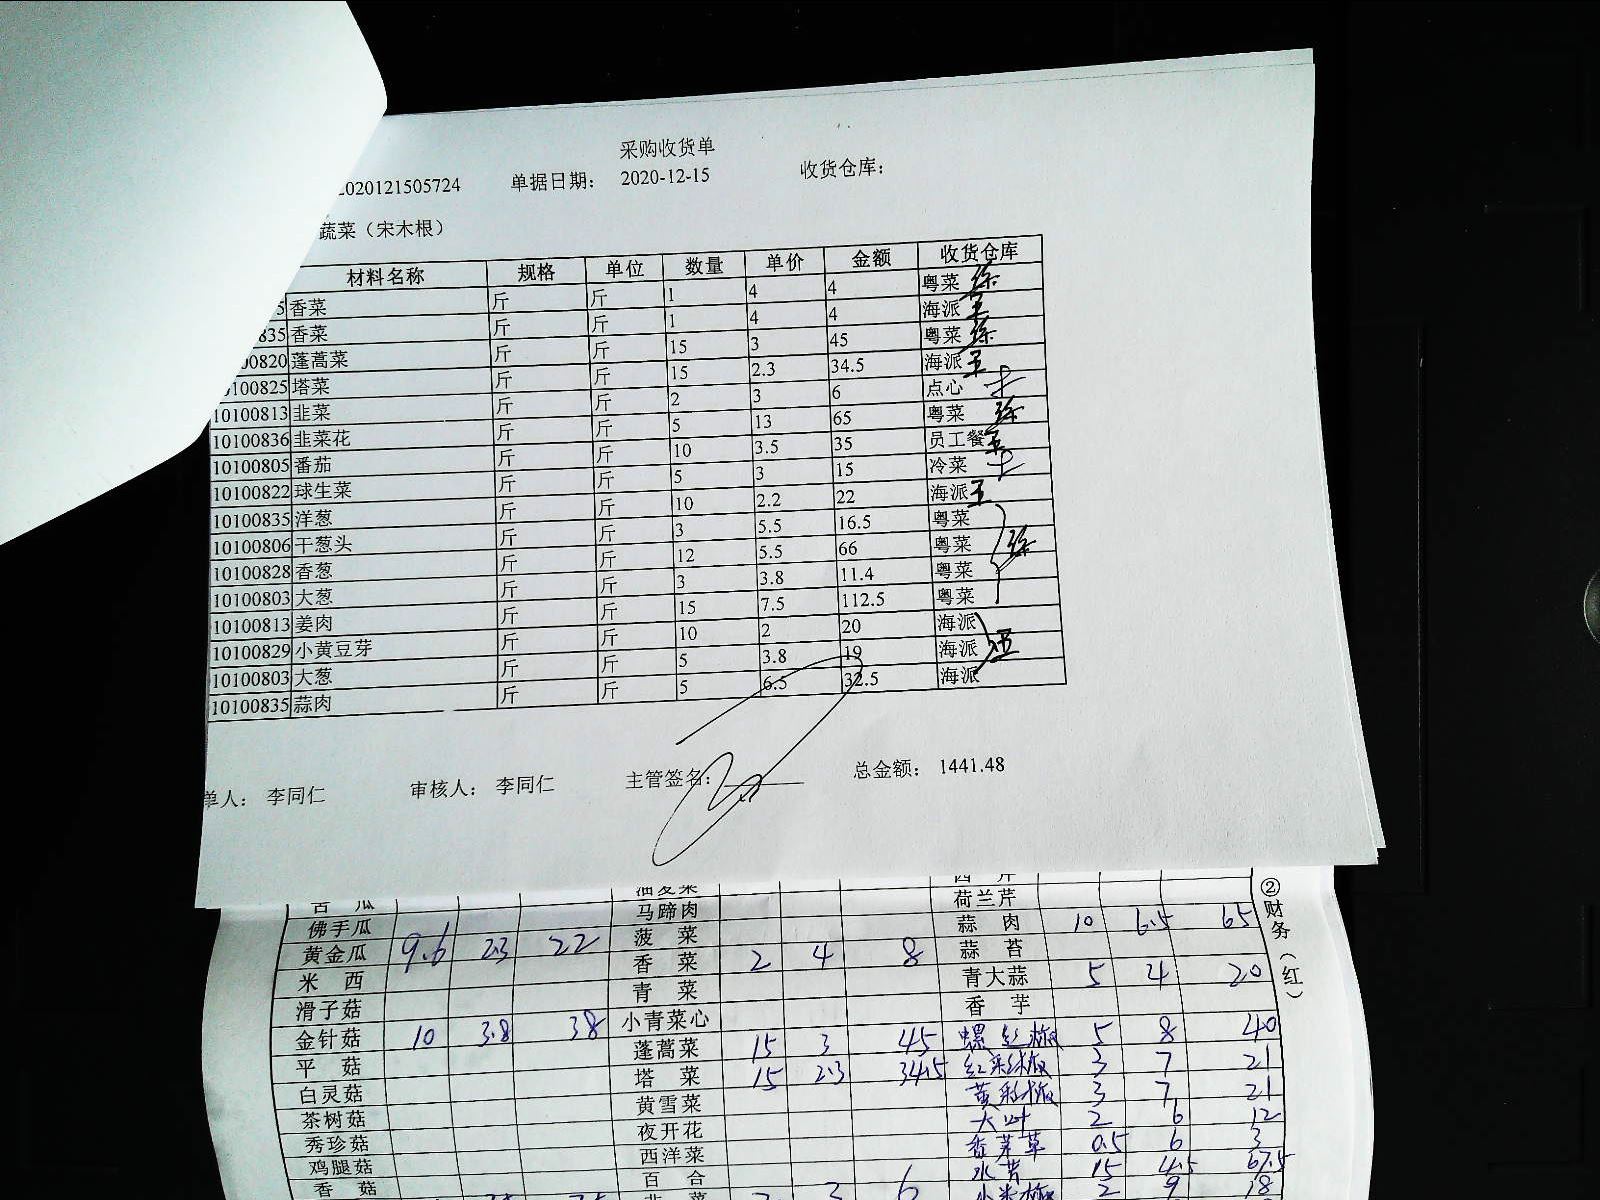 采购收货单
2020121505724 单据日期： 2020-12-15 收货仓库：
蔬菜（宋木根）
材料名称 规格 单位 数量 单价 金额 收货仓库
5 香菜 斤 斤 1 4 4 粤菜
835 香菜 斤 斤 1 4 4 海派 王
00820 蓬蒿菜 斤 斤 15 3 45 粤菜
0100825 塔菜 斤 斤 15 2.3 34.5 海派 王
10100813 韭菜 斤 斤 2 3 6 点心
10100836 韭菜花 斤 斤 5 13 65 粤菜
10100805 番茄 斤 斤 10 3.5 35 员工餐
10100822 球生菜 斤 斤 5 3 15 冷菜
10100835 洋葱 斤 斤 10 2.2 22 海派 王
10100806 干葱头 斤 斤 3 5.5 16.5 粤菜
10100828 香葱 斤 斤 12 5.5 66 粤菜
10100803 大葱 斤 斤 3 3.8 11.4 粤菜
10100813 姜肉 斤 斤 15 7.5 112.5 粤菜
10100829 小黄豆芽 斤 斤 10 2 20 海派
10100803 大葱 斤 斤 5 3.8 19 海派
10100835 蒜肉 斤 斤 5 6.5 32.5 海派
单人： 李同仁 审核人： 李同仁 主管签名： 总金额： 1441.48
苦 瓜 油麦菜 西 芹
佛手瓜 马蹄肉 荷兰芹
黄金瓜 9.6 2.3 22 菠 菜 蒜 肉 10 6.5 65
米 西 香 菜 2 4 8 蒜 苔
滑子菇 青 菜 青大蒜 5 4 20
金针菇 10 3.8 38 小青菜心 香 芋
平 菇 蓬蒿菜 15 3 45 螺丝椒 5 8 40
白灵菇 塔 菜 15 2.3 34.5 红彩椒 3 7 21
茶树菇 黄雪菜 黄彩椒 3 7 21
秀珍菇 夜开花 大叶 2 6 12
鸡腿菇 西洋菜 香茅草 0.5 6 3
香 菇 百 合 水芹 15 4.5 67.5
韭 菜 2 3 6 小米椒 2 9 18
②财务（红）